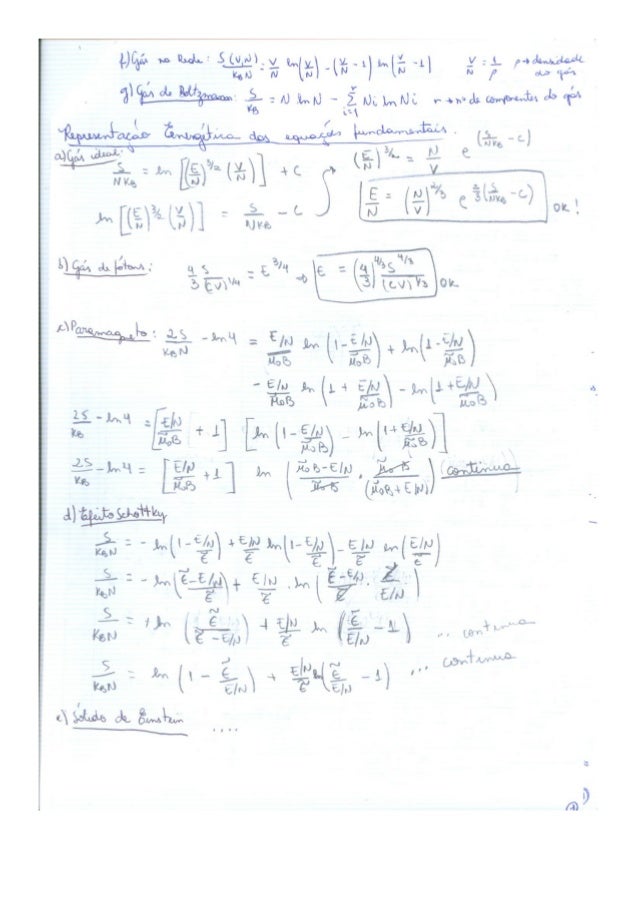 f) Gás na Rede: S(V,N)/k_BN = V/N ln(V/N) - (V/N - 1) ln(V/N - 1)   V/N = 1/ρ   ρ → densidade do gás
g) Gás de Boltzmann: S/k_B = N ln N - Σ_{i=1}^{r} Ni ln Ni   r → nº de componentes do gás
Representação Energética das equações fundamentais.
a) Gás ideal:
S/Nk_B = ln [(E/N)^{3/2} (V/N)] + C   (E/N)^{3/2} = N/V e^{(S/Nk_B - C)}
ln [(E/N)^{3/2} (V/N)] = S/Nk_B - C   E/N = (N/V)^{2/3} e^{2/3(S/Nk_B - C)} OK!
b) Gás de fótons: 4/3 S/(CV)^{1/4} = E^{3/4} ⇒ E = (4/3)^{4/3} S^{4/3}/(CV)^{1/3} OK
c) Paramagneto: 2S/k_BN - ln 4 = E/N/μ̃₀B ln (1 - E/N/μ̃₀B) + ln (1 - E/N/μ̃₀B)
- E/N/μ̃₀B ln (1 + E/N/μ̃₀B) - ln (1 + E/N/μ̃₀B)
2S/k_B - ln 4 = [E/N/μ̃₀B + 1] [ln (1 - E/N/μ̃₀B) - ln (1 + E/N/μ̃₀B)]
2S/k_B - ln 4 = [E/N/μ̃₀B + 1] ln (μ̃₀B - E/N/μ̃₀B · μ̃₀B/(μ̃₀B + E/N)) continua
d) Efeito Schottky
S/k_BN = - ln (1 - E/N/ε̃) + E/N/ε̃ ln (1 - E/N/ε̃) - E/N/ε̃ ln (E/N/ε̃)
S/k_BN = - ln (ε̃ - E/N/ε̃) + E/N/ε̃ · ln (ε̃ - E/N/ε̃ · ε̃/E/N)
S/k_BN = + ln (ε̃/ε̃ - E/N) + E/N/ε̃ ln (ε̃/E/N - 1) ... continua
S/k_BN = ln (1 - ε̃/E/N) + E/N/ε̃ ln (ε̃/E/N - 1) ... continua
e) Sólido de Einstein ....